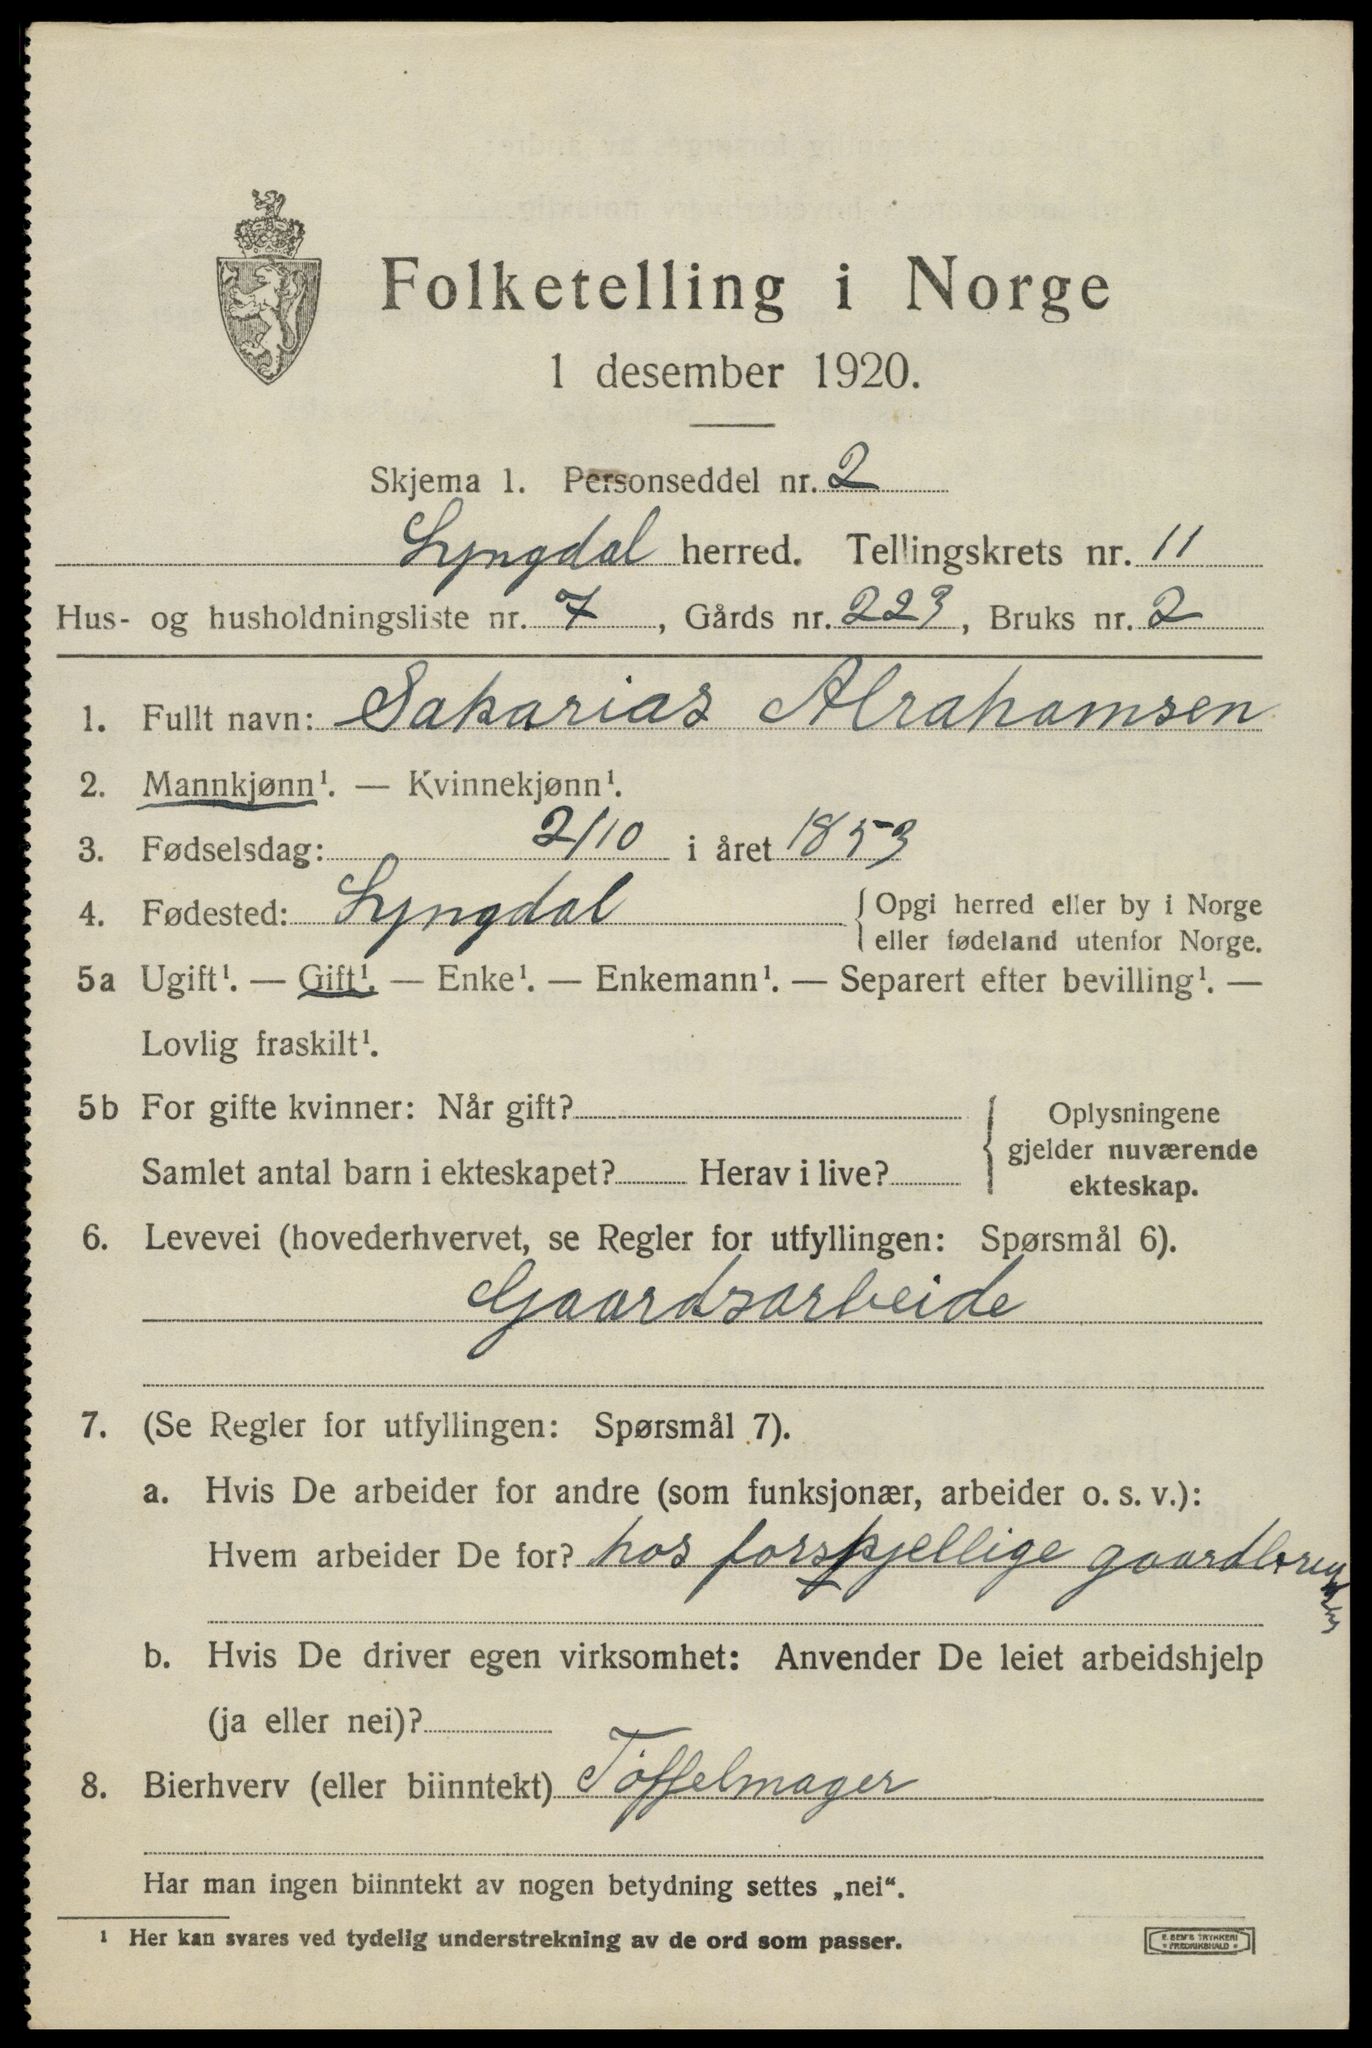 Folketelling i Norge
1 desember 1920.
Skjema 1. Personseddel nr. 2
Lyngdal herred. Tellingskrets nr. 11
Hus- og husholdningsliste nr. 7, Gårds nr. 223, Bruks nr. 2
1. Fullt navn: Sakarias Abrahamsen
2. Mannkjønn¹. — Kvinnekjønn¹.
3. Fødselsdag: 2/10 i året 1853
4. Fødested: Lyngdal { Opgi herred eller by i Norge
eller fødeland utenfor Norge.
5a Ugift¹. — Gift¹. — Enke¹. — Enkemann¹. — Separert efter bevilling¹. —
Lovlig fraskilt¹.
5b For gifte kvinner: Når gift? { Oplysningene
gjelder nuværende
Samlet antal barn i ekteskapet? Herav i live?
ekteskap.
6. Levevei (hovederhvervet, se Regler for utfyllingen: Spørsmål 6).
Gaardsarbeide
7. (Se Regler for utfyllingen: Spørsmål 7).
a. Hvis De arbeider for andre (som funksjonær, arbeider o. s. v.):
Hvem arbeider De for? hos forskjellige
b. Hvis De driver egen virksomhet: Anvender De leiet arbeidshjelp
(ja eller nei)?
8. Bierhverv (eller biinntekt) Töffelmager
Har man ingen biinntekt av nogen betydning settes „nei“.
¹ Her kan svares ved tydelig understrekning av de ord som passer.
E. SEM'S TRYKKERI
* FREDRIKSHALD *